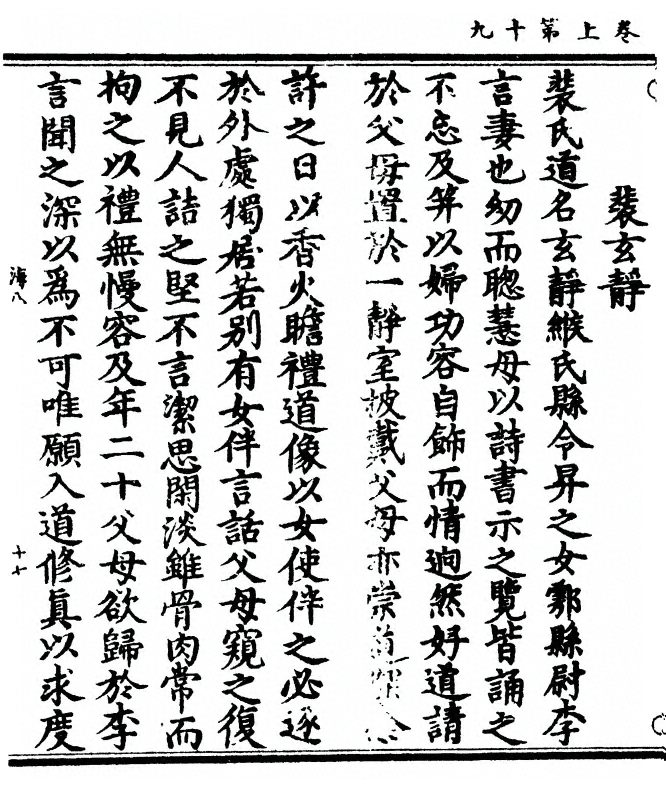 卷上第十九
裴玄靜
裴氏道名玄靜緱氏縣令昇之女鄠縣尉李
言妻也幼而聰慧母以詩書示之覽皆誦之
不忘及笄以婦功容自飾而情逈然好道請
於父母置於一靜室披戴父母亦崇道
許之日以香火瞻禮道像以女使伴之必逐
於外處獨居若别有女伴言話父母窺之復
不見人詰之堅不言潔思閑淡雖骨肉常而
拘之以禮無慢容及年二十父母欲歸於李
言聞之深以爲不可唯願入道修眞以求度
海八
十七